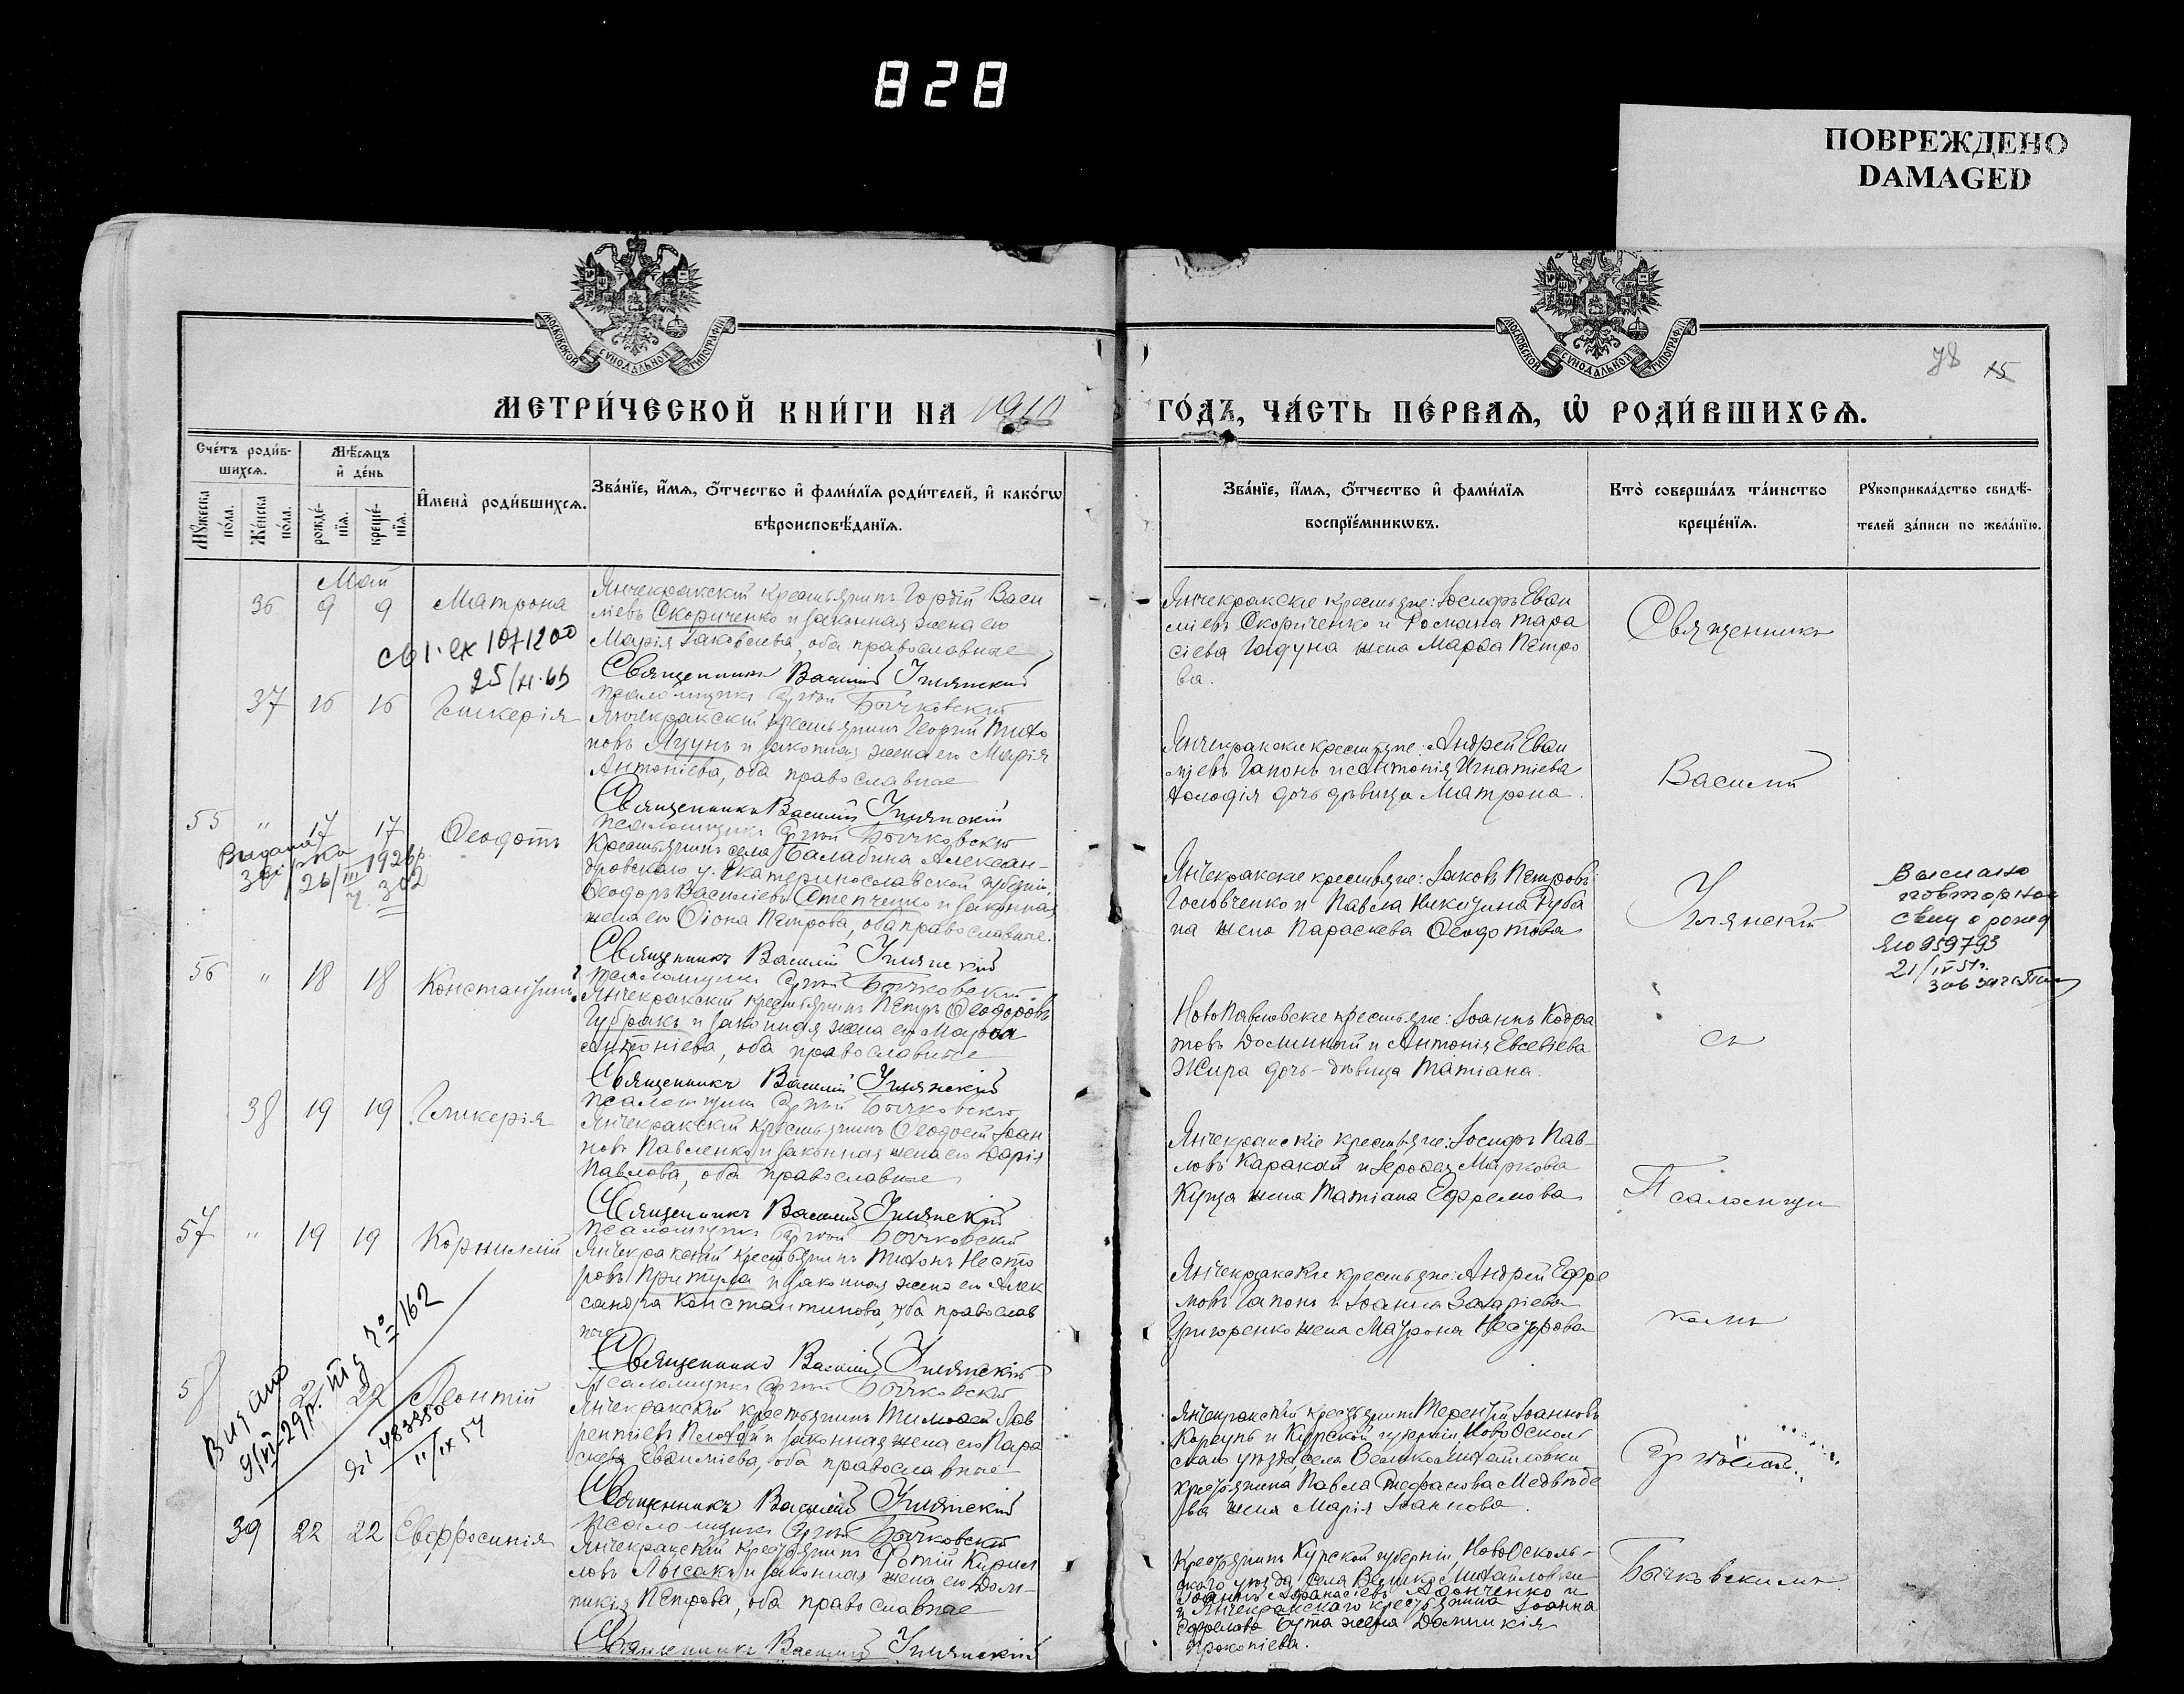 828
ПОВРЕЖДЕНО
DAMAGED
МОСКОВСКОЙ СѴНОДАЛЬНОЙ ТИПОГРАФІИ
МОСКОВСКОЙ СѴНОДАЛЬНОЙ ТИПОГРАФІИ
78 15
МЕТРИ́ЧЕСКОЙ КНИ́ГИ НА 1910
ГО́ДЪ, ЧА́СТЬ ПЕ́РВАѦ, Ѡ҆ РОДИ́ВШИХСѦ.
Сче́тъ роди́в-
шихсѧ.
Мꙋ́жеска по́ла.
Же́нска по́ла.
Мѣ́сѧцъ
и҆ де́нь
рожде́-
нїѧ.
креще́-
нїѧ.
И҆мена̀ роди́вшихсѧ.
Зва́нїе, и҆́мѧ, ѻ҆́тчество и҆ фами́лїѧ роди́телей, и҆ како́гѡ
вѣроисповѣ́данїѧ.
Зва́нїе, и҆́мѧ, ѻ҆́тчество и҆ фами́лїѧ
воспрїе́мникѡвъ.
Кто̀ соверша́лъ та́инство
креще́нїѧ.
Рꙋкоприкла́дство свидѣ́-
телей за́писи по жела́нїю.
Май
36 9 9 Матрона
Янчекракскій крестьянинъ Гордій Васи
ліевъ Скориченко и законная жена его
Марія Іаковлева, оба православные
Священникъ Василій Улянскій
псаломщикъ Сергій Бычковскій
Янчекракскіе крестьяне: Іосифъ Евѳи
міевъ Скориченко и Романа Тара
сіева Гадуна жена Марѳа Петро
ва.
Священникъ
37 16 16 Гликерія
Янчекракскій крестьянинъ Георгій Тихо
новъ Яцунъ и законная жена его Марія
Антоніева, оба православные
Священникъ Василій Улянскій
псаломщикъ Сергій Бычковскій
Янчекракскіе крестьяне: Андрей Евѳи
міевъ Гапонъ и Антонія Игнатіева
дочь дѣвица Матрона.
Василій
55 " 17 17 Ѳеодотъ
Крестьянинъ села Балабина Алексан-
дровскаго у. Екатеринославской губерніи,
Ѳеодоръ Василіевъ Степченко и законная
жена его Ѳіона Петрова, оба православные.
Священникъ Василій Улянскій
псаломщикъ Сергій Бычковскій
Янчекракскіе крестьяне: Іаковъ Петровъ
Головченко и Павла Никитина Губа
на жена Параскева Ѳеодотова
Улянскій
Выслано
повторное
свид о рожд
ЯЮ 959793
21/IV 51г.
56 " 18 18 Константинъ
Янчекракскій крестьянинъ Петръ Ѳеодоровъ
Губракъ и законная жена его Марѳа
Антоніева, оба православные
Священникъ Василій Улянскій
псаломщикъ Сергій Бычковскій
НовоПавловскіе крестьяне: Іоаннъ Кодра
товъ Долинный и Антонія Евсевіева
Жира дочь-дѣвица Татіана.
съ
38 19 19 Гликерія
Янчекракскій крестьянинъ Ѳеодосій Іоан
новъ Павленко и законная жена его Дарія
Павлова, оба православные
Священникъ Василій Улянскій
псаломщикъ Сергій Бычковскій
Янчекракскіе крестьяне: Іосифъ Пав-
ловъ Каракай и Іероѳея Маркова
Куца жена Татіана Ефремова
Псаломщи
57 " 19 19 Корнилій
Янчекракскій крестьянинъ Тихонъ Несто
ровъ Притула и законная жена его Алек
сандра Константинова, оба православ
ные
Священникъ Василій Улянскій
Псаломщикъ Сергій Бычковскій
Янчекракскіе крестьяне: Андрей Ефре
мовъ Гапонъ и Іоанна Захаріева
Григоренко жена Матрона Несторова
комъ
58 21 22 Леонтій
Янчекракскій крестьянинъ Тимоѳей Лав
рентіевъ Плохой и законная жена его Пара
скева Евѳиміева, оба православные
Священникъ Василій Улянскій
псаломщикъ Сергій Бычковскій
Янчекракскій крестьянинъ Терентій Іоанновъ
Корсунъ и Курской губерніи, НовоОсколь
скаго уѣзда, села Велико-Михайловки
крестьянина Павла Стефанова Медвѣде
ва жена Марія Іоаннова.
Сергіемъ
39 22 22 Евфросинія
Янчекракскій крестьянинъ Фотій Кирил
ловъ Лысакъ и законная жена его Дом-
никія Петрова, оба православные
Священникъ Василій Улянскій
Крестьянинъ Курской губерніи, НовоОсколь-
скаго уѣзда, села Велико-Михайловки
Іоаннъ Аѳанасіевъ Адонченко и
Янчекракскаго крестьянина Іоанна
Ефремова Бута жена Домникія
Прокопіева.
Бычковскимъ.